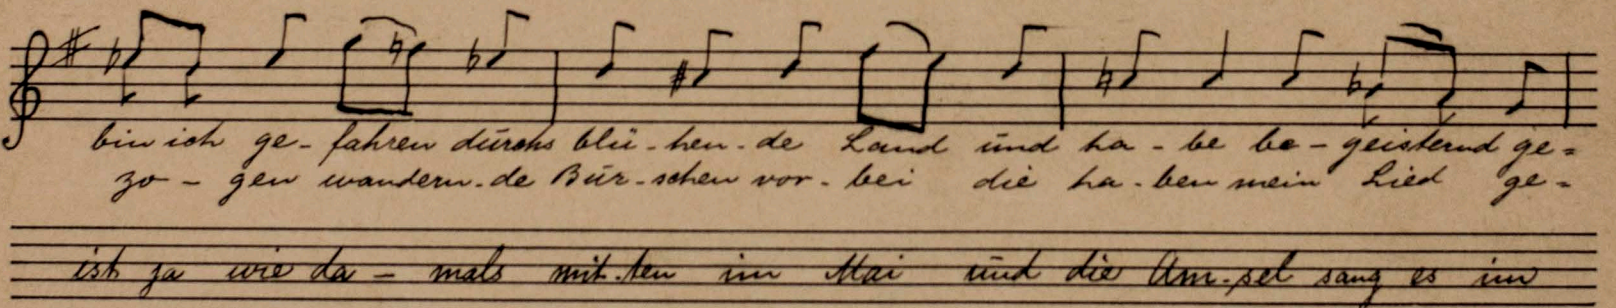 bin ich ge- fahren dūrchs blü-hen-de Land ūnd ha-be be-geisternd ge=
zo-gen wandern-de Būr-schen vor-bei die ha-ben mein Lied ge=
ist ja wie da-mals mit-ten im Mai ūnd die Am-sel sang es im